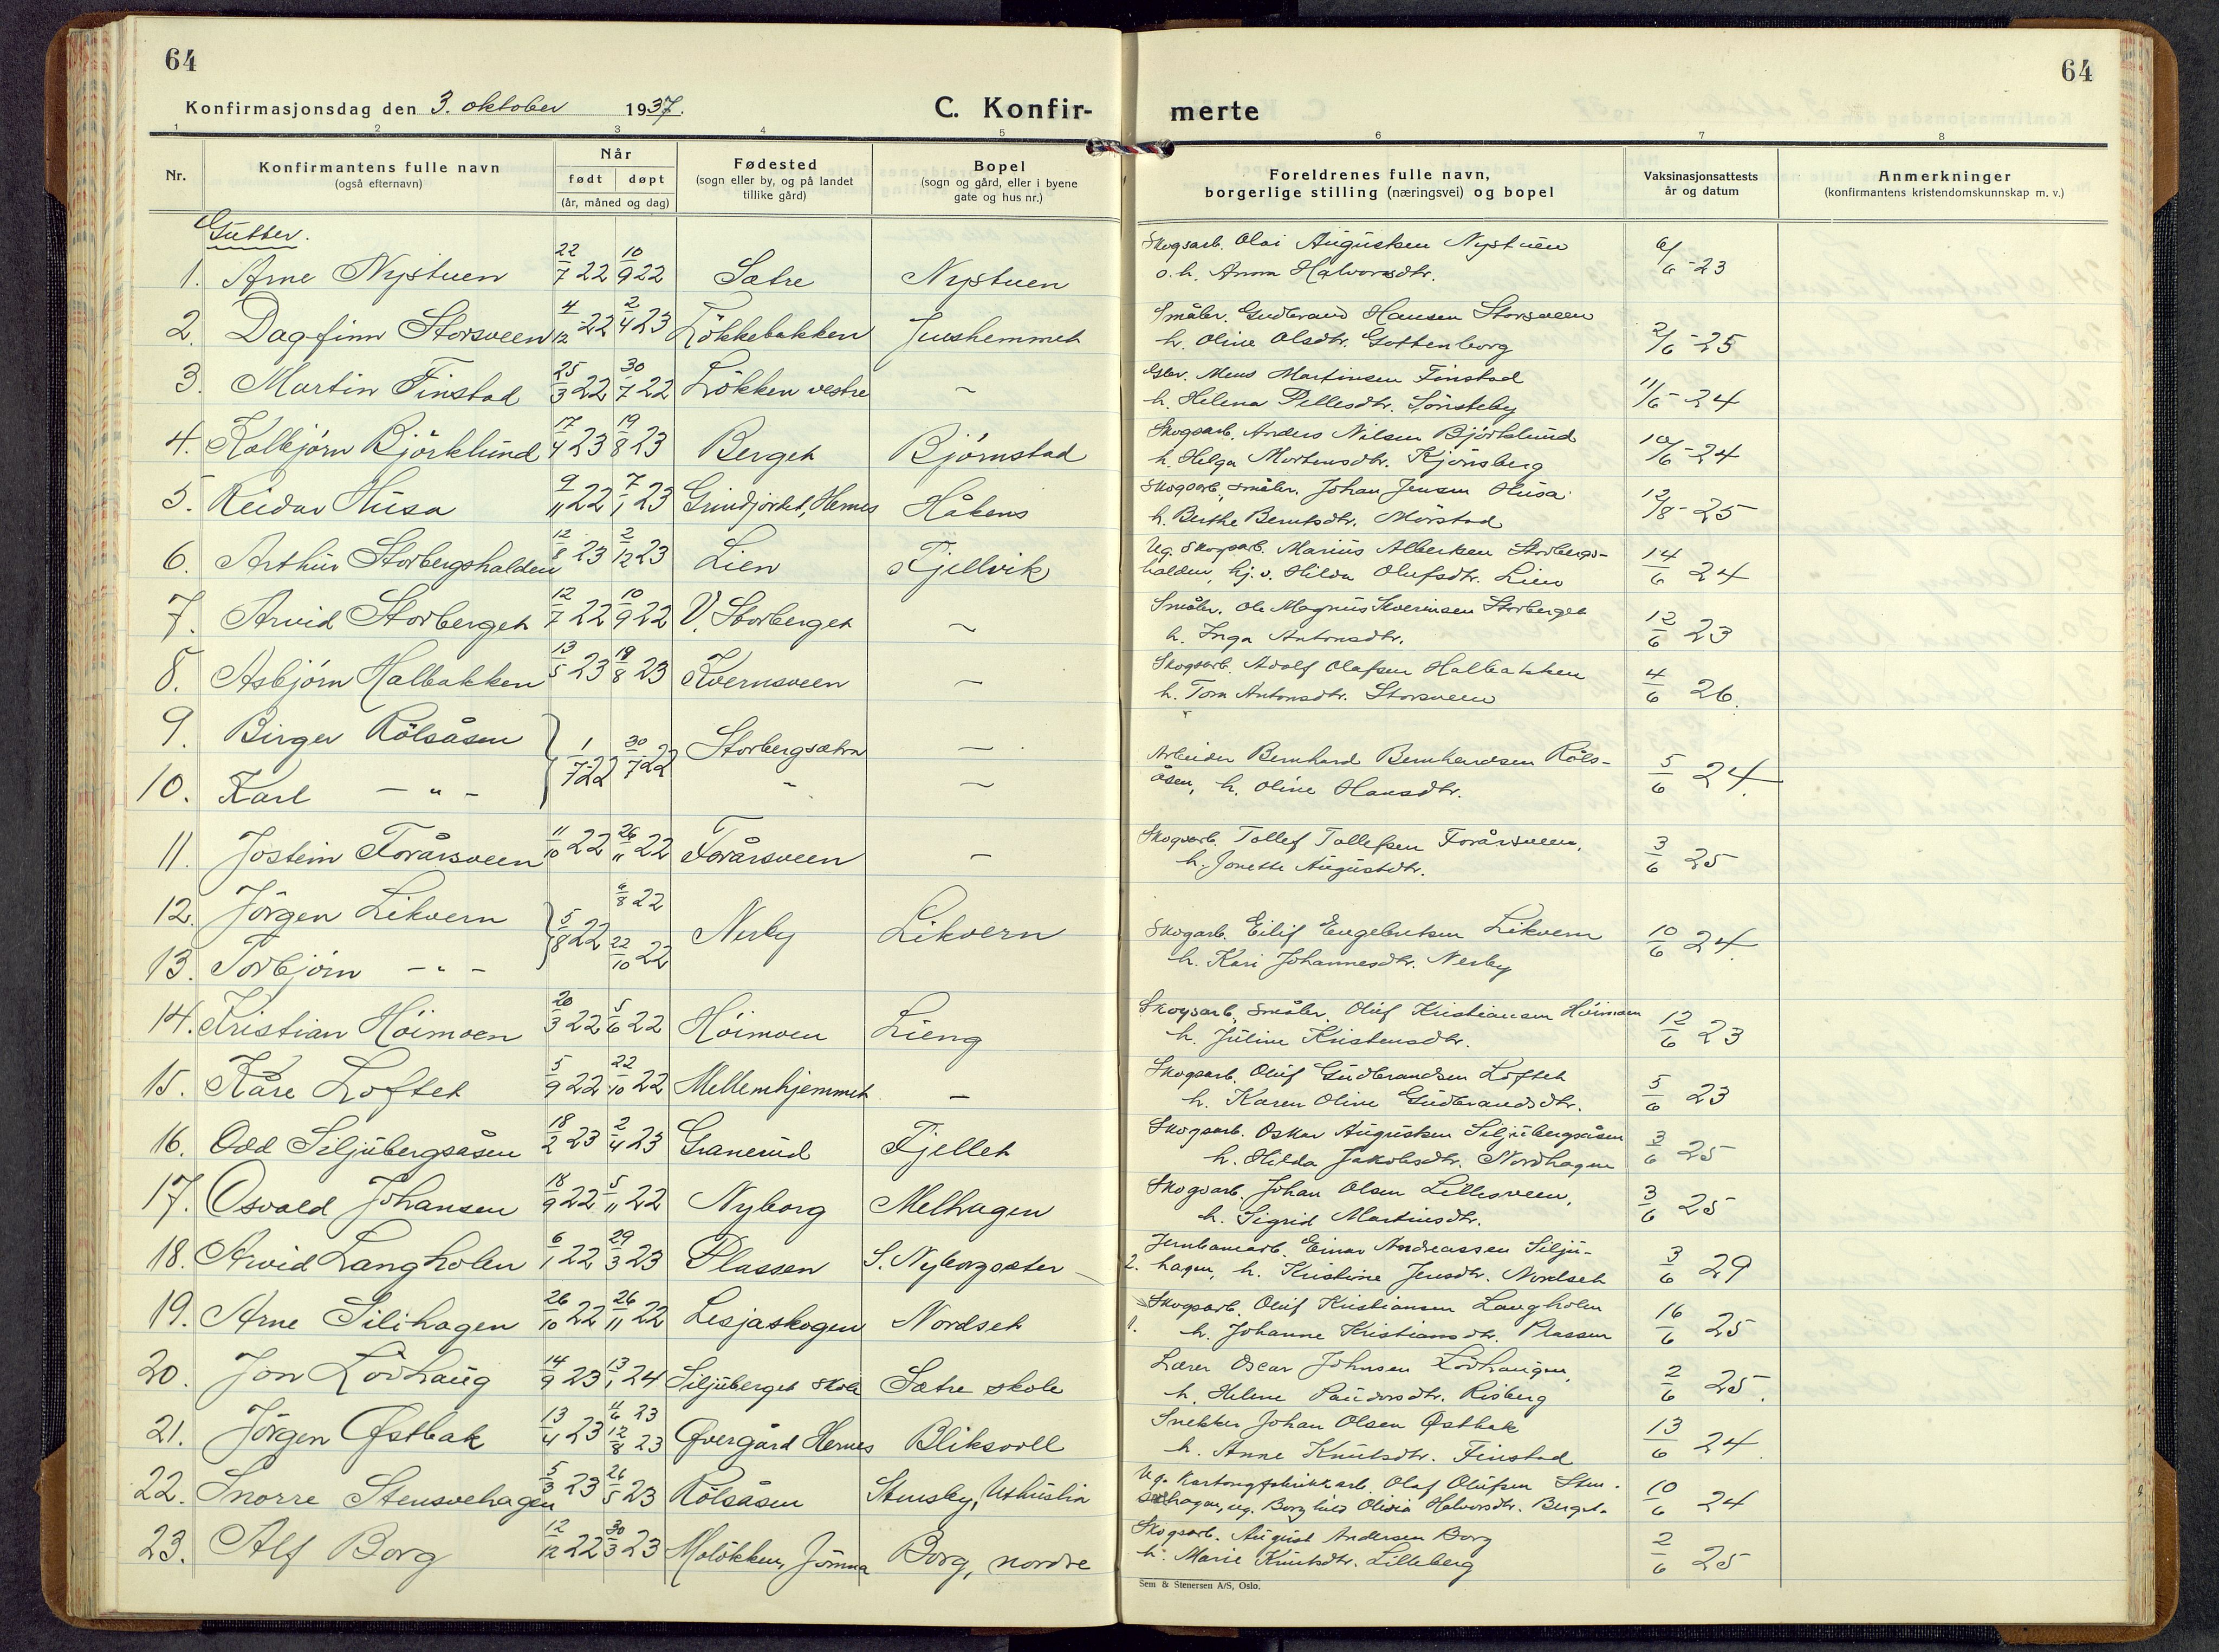 64
Konfirmasjonsdag den 3. oktober 1937.
C. Konfir-
1 2 3 4 5
Nr.
Konfirmantens fulle navn
(også efternavn)
Når
født døpt
(år, måned og dag)
Fødested
(sogn eller by, og på landet
tillike gård)
Bopel
(sogn og gård, eller i byene
gate og hus nr.)
Gutter.
1. Arne Nystuen 22/7 22 10/9 22 Sætre Nystuen
2. Dagfinn Storsveen 4/12 22 2/4 23 Løkkebakken
3. Martin Finstad 25/3 22 30/7 22 Løkken vestre –
4. Kolbjørn Björklund 17/4 23 19/8 23 Berget Bjørnstad
5. Reidar Husa 9/11 22 7/1 23 Grindjordet, Hernes Håkens
6. Arthur Storbergshalden 12/8 23 2/12 23 Lien Fjellvik
7. Arvid Storberget 12/7 22 10/9 22 V. Storberget –
8. Asbjørn Halbakken 13/5 23 19/8 23 Kvernsveen –
9. Birger Rölsåsen 1/7 22 30/7 22 Storbergsætra –
10. Karl – " – - –
11. Jostein Forårsveen 11/10 22 26/11 22 Forårsveen –
12. Jörgen Likvern 5/8 22 6/8 22 Nerby Likvern
13. Torbjörn – " – 22/10 22
14. Kristian Höimoen 20/3 22 5/6 22 Höimoen Lieng
15. Kåre Loftet 5/9 22 22/10 22 Mellemhjemmet –
16. Odd Siljubergsåsen 18/2 23 2/4 23 Granerud Fjellet
17. Osvald Johansen 18/9 22 5/11 22 Nyborg Melhagen
18. Arvid Langholen 6/1 22 29/3 23 Plassen S. Nyborgsæter
19. Arne Silihagen 26/10 22 26/11 22 Lesjaskogen Nordset
20. Jon Lövhaug 14/9 23 13/1 24 Siljuberget skole Sætre skole
21. Jörgen Østbak 13/4 23 11/6 23 12/8 23 Øvergård Hernes Bliksvoll
22. Snorre Stensvehagen 5/3 23 26/5 23 Rölsåsen Stensby,
23. Alf Borg 12/12 22 30/3 23 Molökken, Jömna Borg, nordre
64
merte
6 7 8
Foreldrenes fulle navn,
borgerlige stilling (næringsvei) og bopel
Vaksinasjonsattests
år og datum
Anmerkninger
(konfirmantens kristendomskunnskap m. v.)
Skogsarb. Olai Augustsen Nystuen
o. h. Anna Halvorsdtr. 6/6 -23
Småbr. Gudbrand Hansen Storsveen
h. Oline Olsdtr. Gottenborg 2/6 -25
Gbr. Mens Martinsen Finstad
h. Helena Pellesdtr. Sönsteby 11/6 -24
Skogsarb. Anders Nilsen Björklund
h. Helga Mortensdtr. Kjönsberg 10/6 -24
Skogsarb., småbr. Johan Jensen Husa
h. Berthe Berntsdtr. Mörstad 12/8 -25
Ug. Skogsarb. Marius Albertsen Storbergs-
halden, hj. v. Hilda Olufsdtr. Lien 14/6 24
Småbr. Ole Magnus Severinsen Storberget
h. Inga Antonsdtr. 12/6 23
Skogsarb. Adolf Olafsen Halbakken
h. Tora Antonsdtr. Storsveen 4/6 26.
Arbeider Bernhard Bernhardsen Röls-
åsen, h. Oline Hansdtr. 5/6 24.
Skogsarb. Tollef Tollefsen Forårsveen,
h. Jonette Augustdtr. 3/6 25
Skogarb. Eilif Engebretsen Likvern
h. Kari Johannesdtr. Nerby 10/6 24.
Skogsarb, småbr. Oluf Kristiansen Höimoen
h. Juline Kristensdtr. 12/6 23
Skogsarb. Oluf Gudbrandsen Loftet
h. Karen Oline Gudbrandsdtr. 5/6 23
Skogsarb. Oskar Augustsen Siljubergsåsen
h. Hilda Jakobsdtr. Nordhagen 3/6 25
Skogsarb. Johan Olsen Lillesveen,
h. Sigrid Martinsdtr. 3/6 25
Jernbanearb. Einar Andreassen Silju-
2. hagen, h. Kristine Jensdtr. Nordset 3/6 29
Skogsarb. Oluf Kristiansen Langholen
1. h. Johanne Kristiansdtr. Plassen 16/6 25
Lærer Oscar Johnsen Lövhaugen,
h. Helene Risberg 2/6 25.
Snekker Johan Olsen Østbak
h. Anne Knutsdtr. Finstad 13/6 24
Ug. Kartongfabrikkarb. Olaf Olufsen Sten-
hagen, ug. Borghild Olivia Halvorsdtr. Berget. 10/6 24
Skogsarb. August Andersen Borg
h. Marie Knutsdtr. Lilleberg 2/6 25
Sem & Stenersen A/S, Oslo.